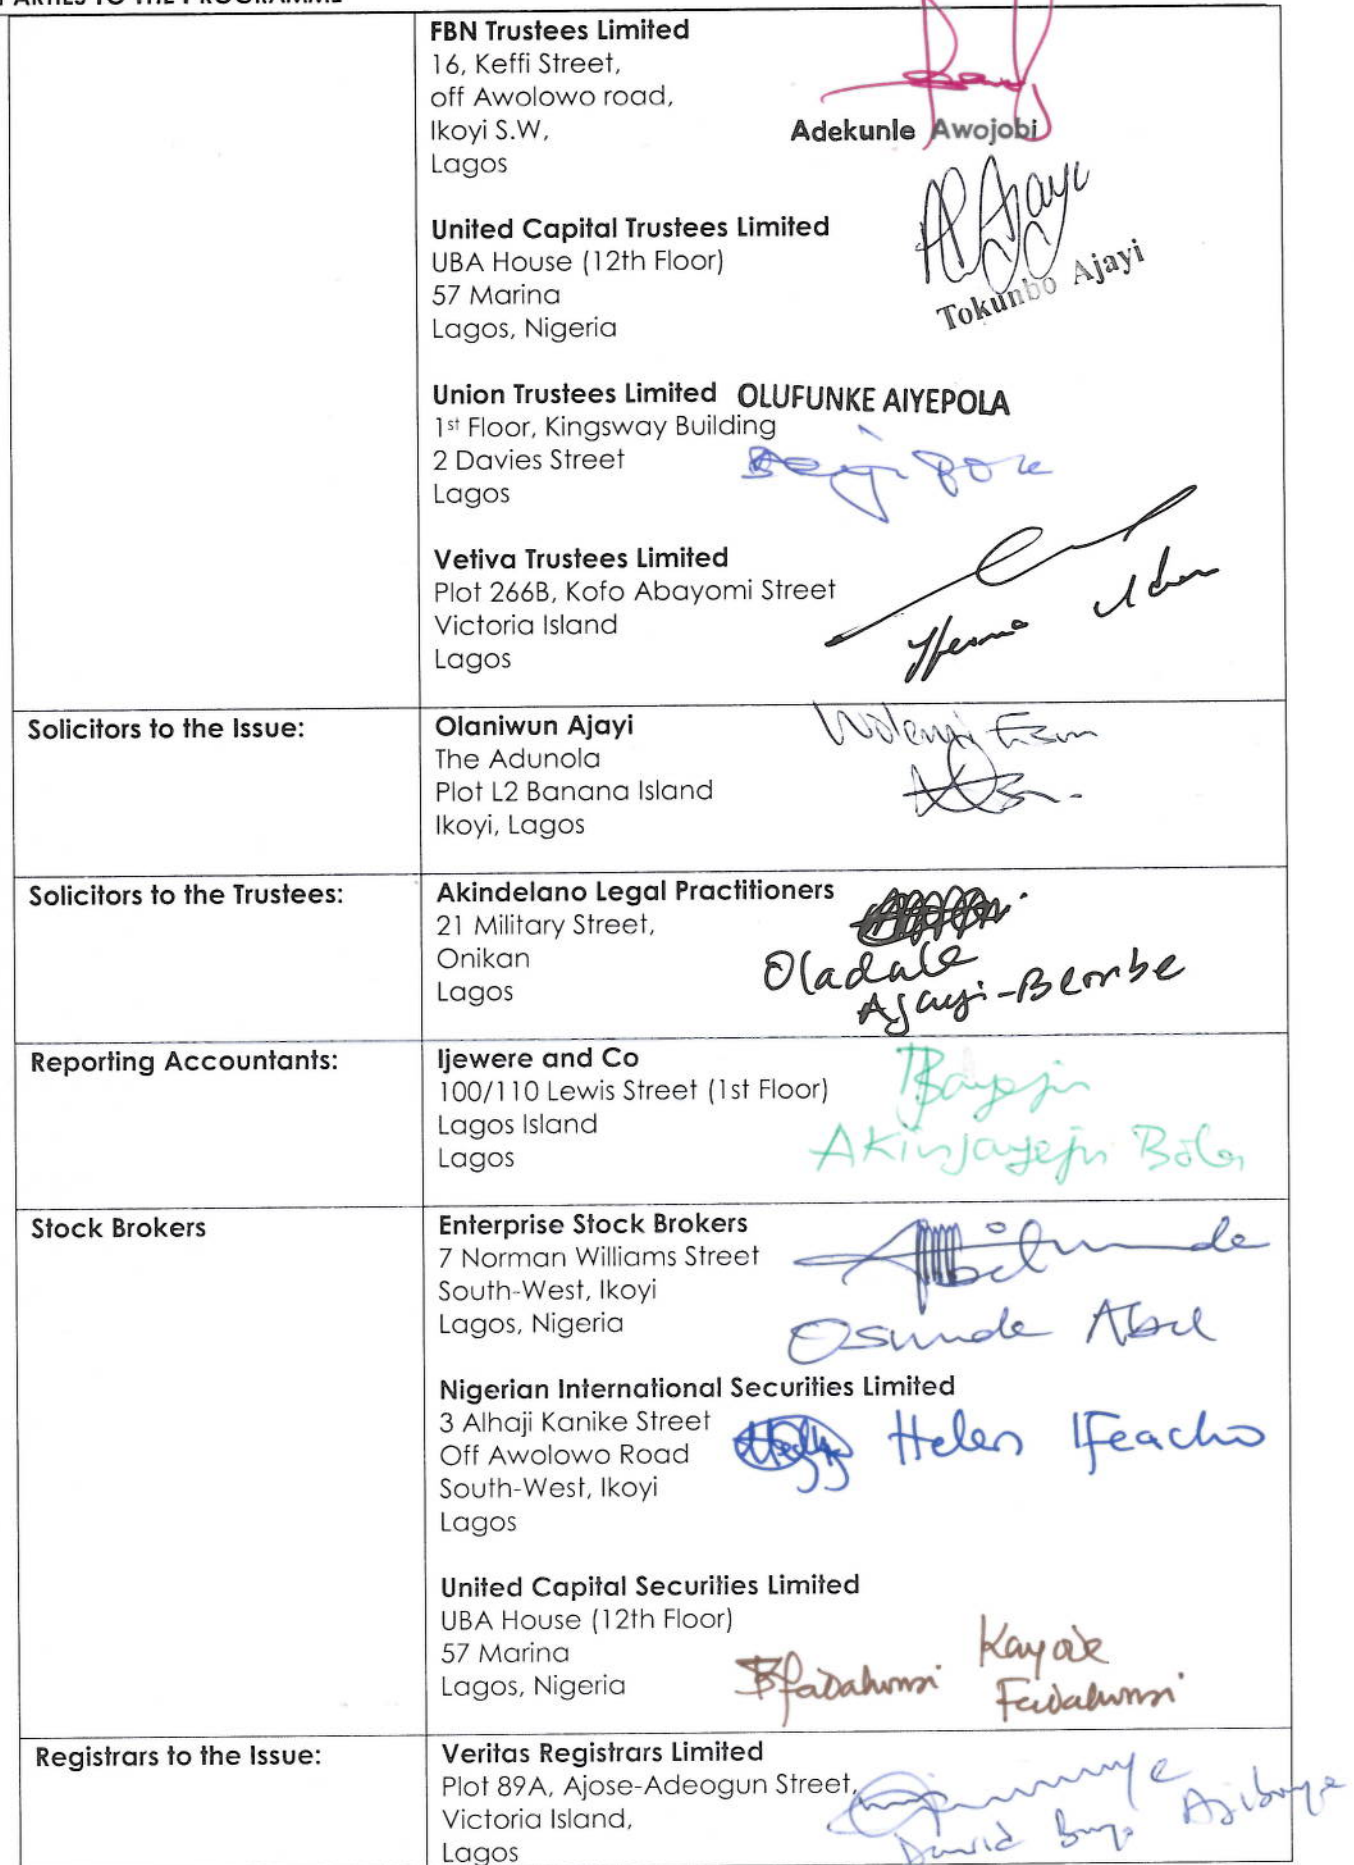 PARTIES TO THE PROGRAMME
FBN Trustees Limited
16, Keffi Street,
off Awolowo road,
Ikoyi S.W,
Lagos
Adekunle Awojobi
United Capital Trustees Limited
UBA House (12th Floor)
57 Marina
Lagos, Nigeria
Ajayi
Tokunbo Ajayi
Union Trustees Limited OLUFUNKE AIYEPOLA
1st Floor, Kingsway Building
2 Davies Street
Lagos
Vetiva Trustees Limited
Plot 266B, Kofo Abayomi Street
Victoria Island
Lagos
Solicitors to the Issue:
Olaniwun Ajayi
The Adunola
Plot L2 Banana Island
Ikoyi, Lagos
Solicitors to the Trustees:
Akindelano Legal Practitioners
21 Military Street,
Onikan
Lagos
Oladale
Ajayi-Bembe
Reporting Accountants:
Ijewere and Co
100/110 Lewis Street (1st Floor)
Lagos Island
Lagos
Akinjayeju
Stock Brokers
Enterprise Stock Brokers
7 Norman Williams Street
South-West, Ikoyi
Lagos, Nigeria
Osunde Abel
Nigerian International Securities Limited
3 Alhaji Kanike Street
Off Awolowo Road
South-West, Ikoyi
Lagos
Helen Ifeacho
United Capital Securities Limited
UBA House (12th Floor)
57 Marina
Lagos, Nigeria
Kayode
Fadahunsi
Registrars to the Issue:
Veritas Registrars Limited
Plot 89A, Ajose-Adeogun Street,
Victoria Island,
Lagos
David